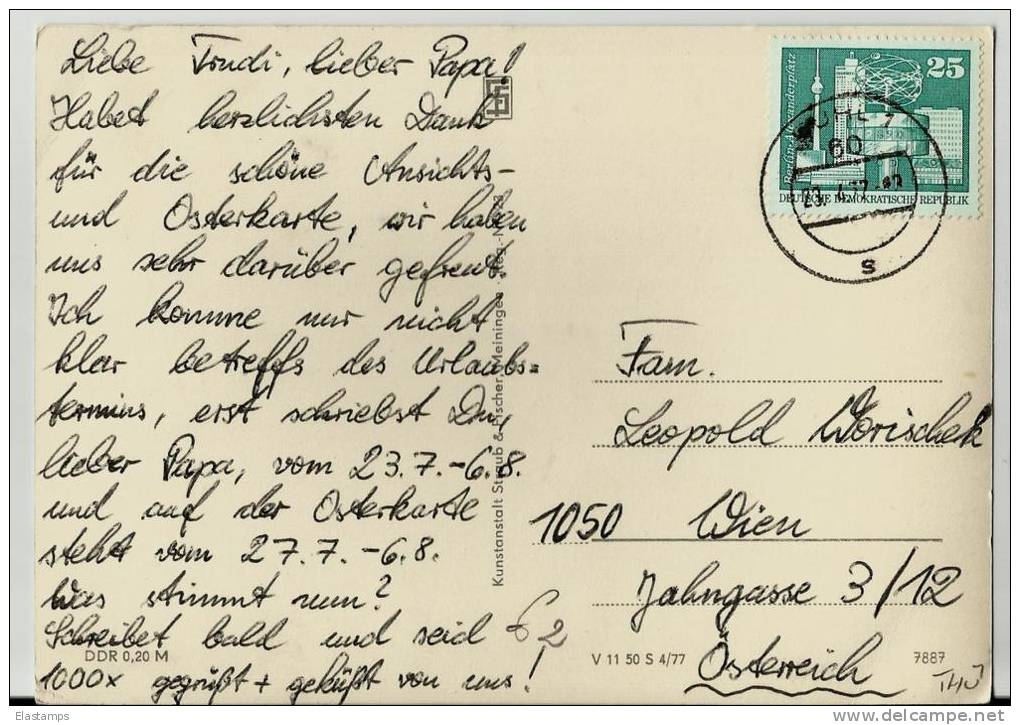 Liebe Trudi, lieber Papa!
Habet herzlichsten Dank
für die schöne Ansichts-
und Osterkarte, wir haben
uns sehr darüber gefreut.
Ich komme nur nicht
klar betreffs des Urlaubs=
termins, erst schriebst Du,
lieber Papa, vom 23.7.-6.8.
und auf der Osterkarte
steht vom 27.7.-6.8.
Was stimmt nun?
Schreibet bald und seid
1000x gegrüßt + geküßt von uns!
DDR 0,20 M
€ 2
Kunstanstalt Straub & Fischer, Meiningen
25
Berlin-Alexanderplatz
DEUTSCHE DEMOKRATISCHE REPUBLIK
SUHL 1
60
s
Fam.
Leopold Worischek
1050 Wien
Jahngasse 3/12
Österreich
V 11 50 S 4/77
7887
THÜ
© Elastamps
www.delcampe.net